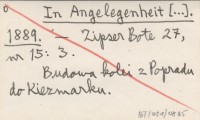 In Angelegenheit [...].
1889. — Zipser Bote 27,
nr 15: 3.
Budowa kolei z Popradu
do Kiezmarku.